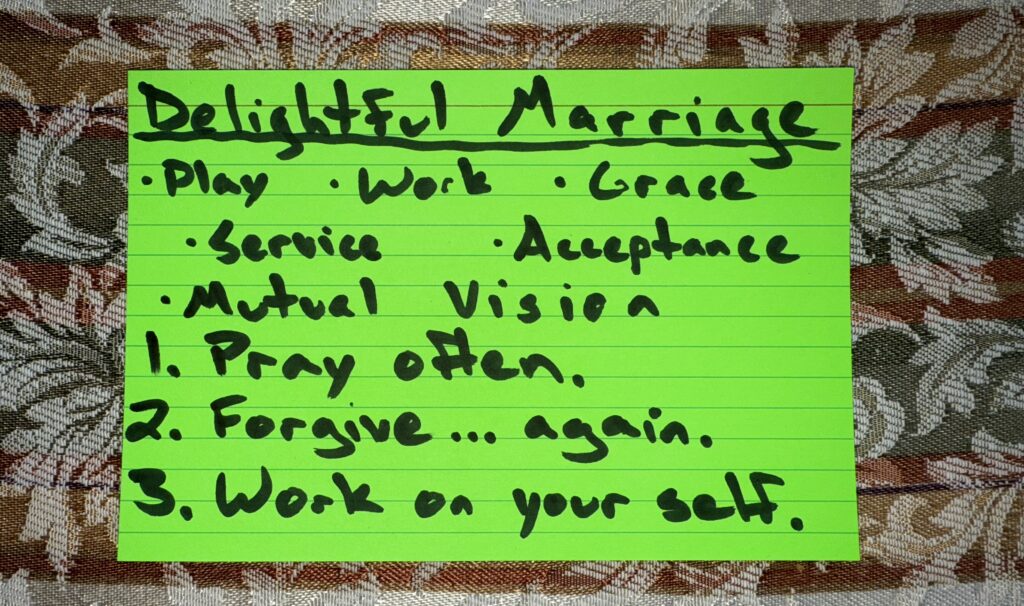 Delightful Marriage
· Play · Work · Grace
· Service · Acceptance
· Mutual Vision
1. Pray often.
2. Forgive... again.
3. Work on your self.